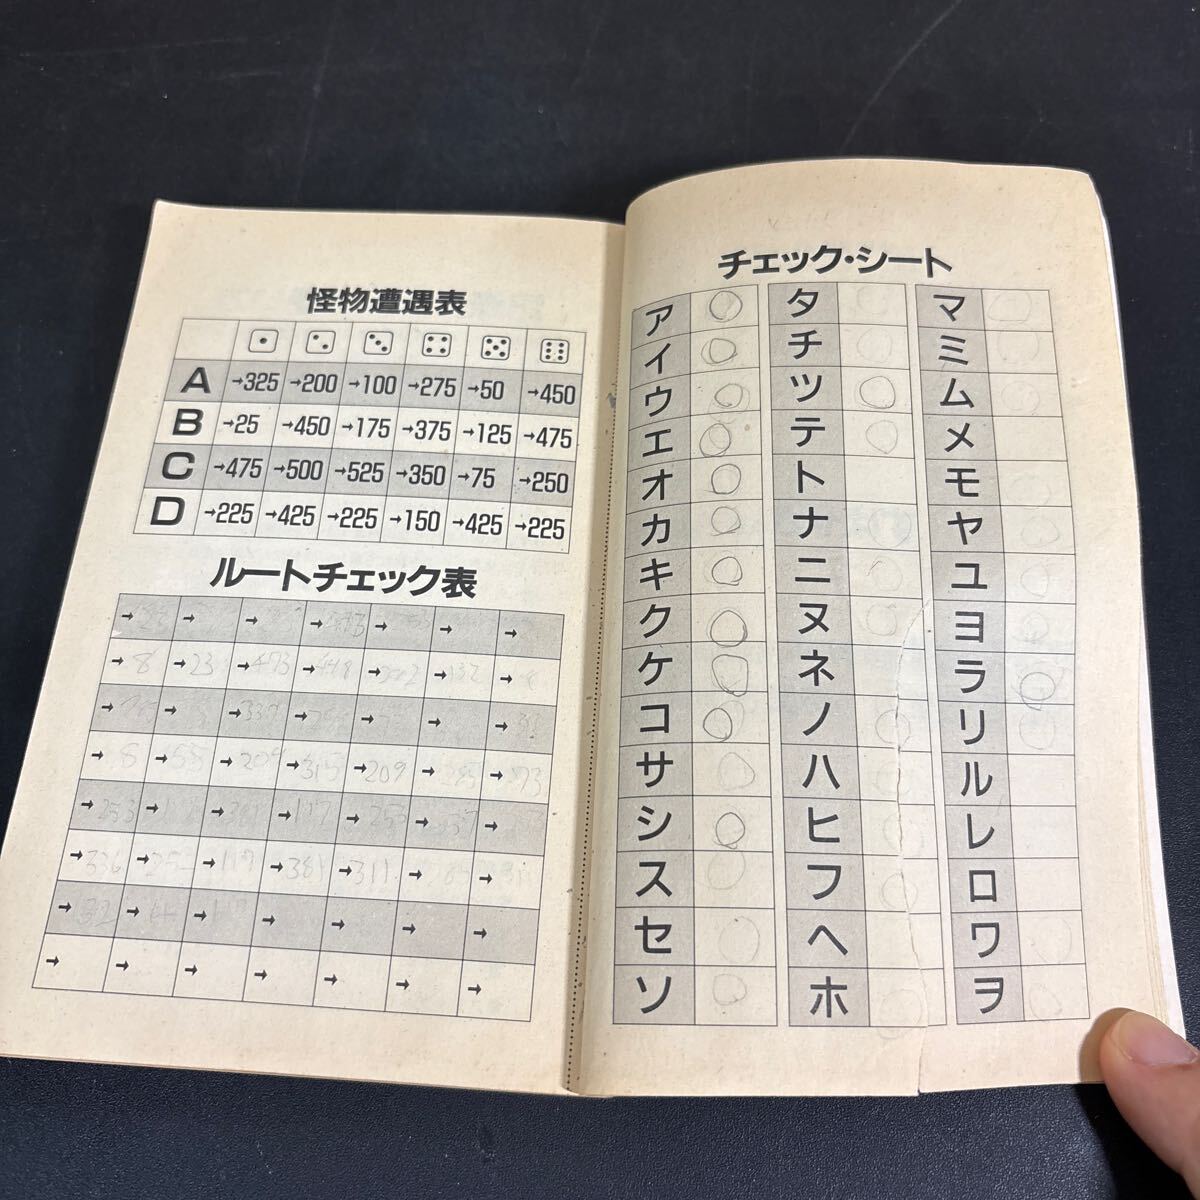 怪物遭遇表
A →325 →200 →100 →275 →50 →450
B →25 →450 →175 →375 →125 →475
C →475 →500 →525 →350 →75 →250
D →225 →425 →225 →150 →425 →225
ルートチェック表
→8 →23 →473 → → → →
→ → →339 → → → →
→8 →55 →209 →315 →209 → →
→253 → → → → → →
→336 → → →381 →311 → →
→ → → → → → →
→ → → → → → →
チェック・シート
ア タ マ
イ チ ミ
ウ ツ ム
エ テ メ
オ ト モ
カ ナ ヤ
キ ニ ユ
ク ヌ ヨ
ケ ネ ラ
コ ノ リ
サ ハ ル
シ ヒ レ
ス フ ロ
セ ヘ ワ
ソ ホ ヲ